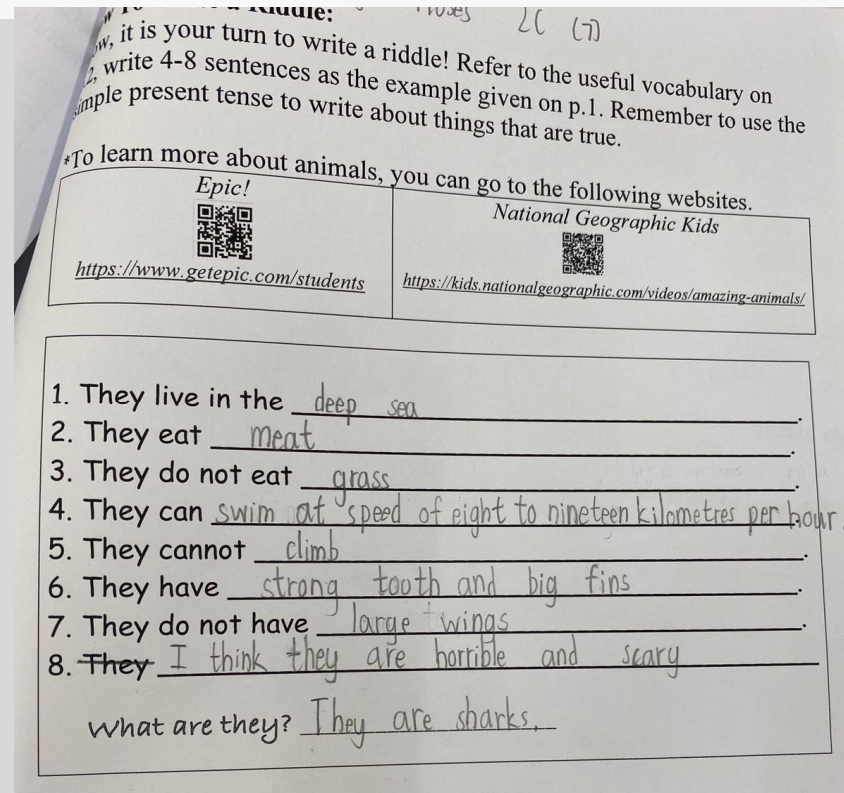 2C (7)
a Riddle:
ow, it is your turn to write a riddle! Refer to the useful vocabulary on
2, write 4-8 sentences as the example given on p.1. Remember to use the
imple present tense to write about things that are true.
*To learn more about animals, you can go to the following websites.
Epic!
https://www.getepic.com/students
National Geographic Kids
https://kids.nationalgeographic.com/videos/amazing-animals/
1. They live in the deep sea.
2. They eat meat.
3. They do not eat grass.
4. They can swim at speed of eight to nineteen kilometres per hour.
5. They cannot climb.
6. They have strong tooth and big fins.
7. They do not have large wings.
8. They I think they are horrible and scary
What are they? They are sharks.